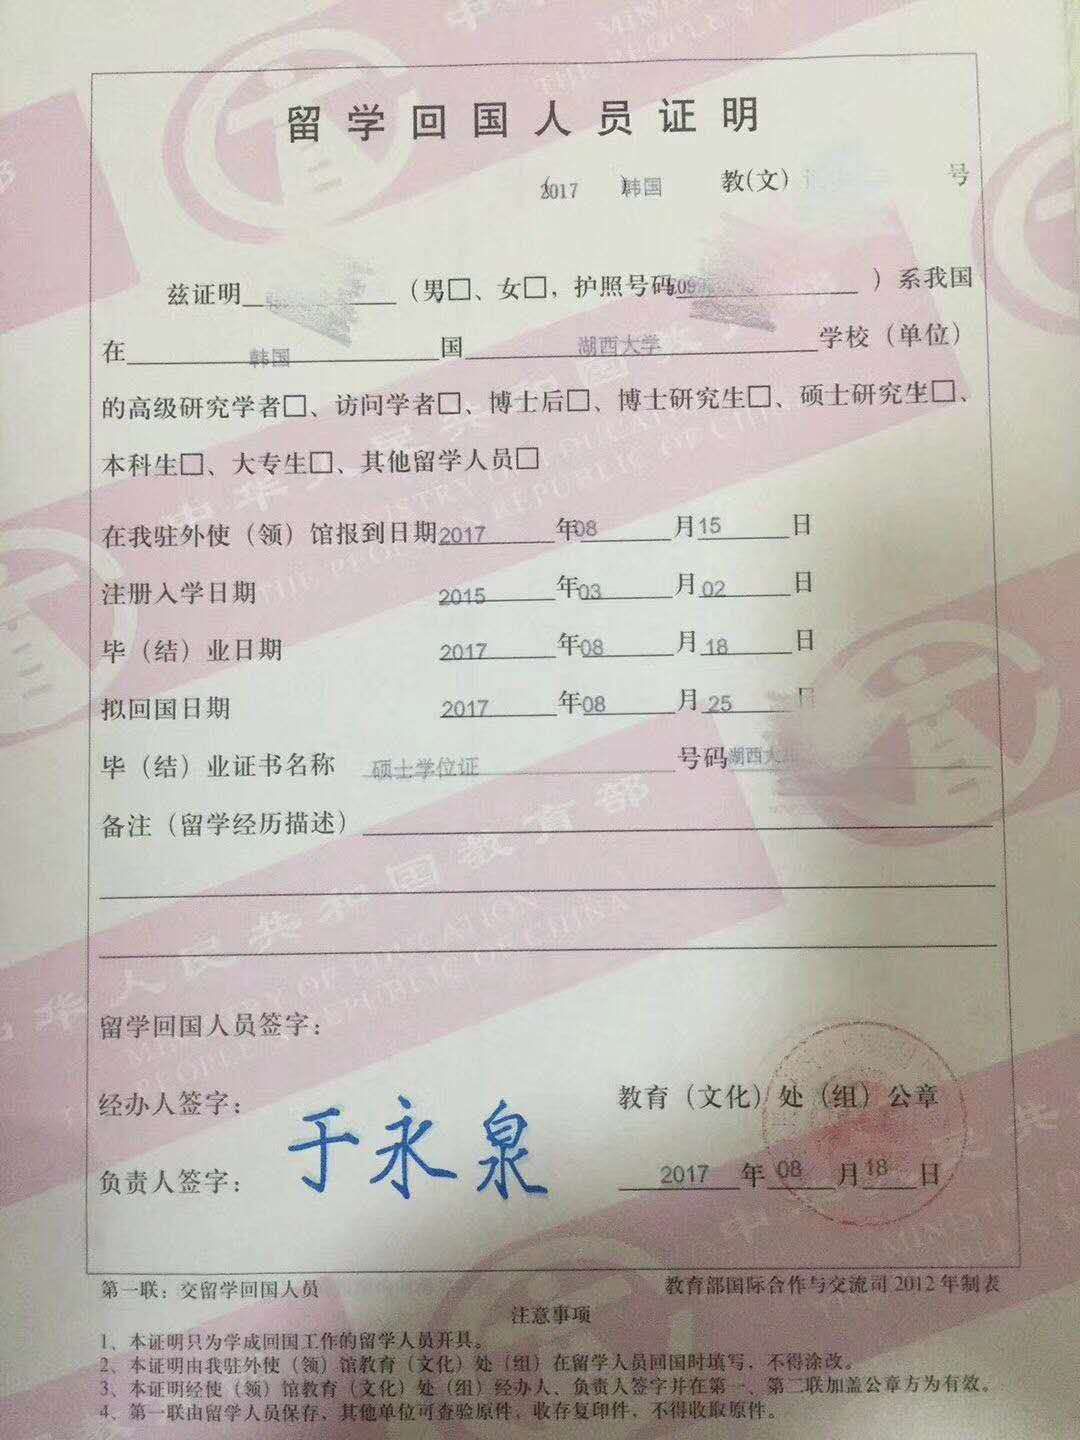 留学回国人员证明
(2017)韩国 教(文) 号
兹证明 (男□、女□,护照号码 )系我国
在 韩国 国 湖西大学 学校(单位)
的高级研究学者□、访问学者□、博士后□、博士研究生□、硕士研究生□、
本科生□、大专生□、其他留学人员□
在我驻外使(领)馆报到日期 2017 年 08 月 15 日
注册入学日期 2015 年 03 月 02 日
毕(结)业日期 2017 年 08 月 18 日
拟回国日期 2017 年 08 月 25 日
毕(结)业证书名称 硕士学位证 号码 湖西大
备注(留学经历描述)
留学回国人员签字:
经办人签字:
教育(文化)处(组)公章
于永泉
负责人签字:
2017 年 08 月 18 日
第一联:交留学回国人员 教育部国际合作与交流司2012年制表
注意事项
1、本证明只为学成回国工作的留学人员开具。
2、本证明由我驻外使(领)馆教育(文化)处(组)在留学人员回国时填写,不得涂改。
3、本证明经使(领)馆教育(文化)处(组)经办人、负责人签字并在第一、第二联加盖公章方为有效。
4、第一联由留学人员保存,其他单位可查验原件,收存复印件,不得收取原件。
中华人民共和国教育部
MINISTRY OF EDUCATION
THE PEOPLE'S REPUBLIC OF CHINA